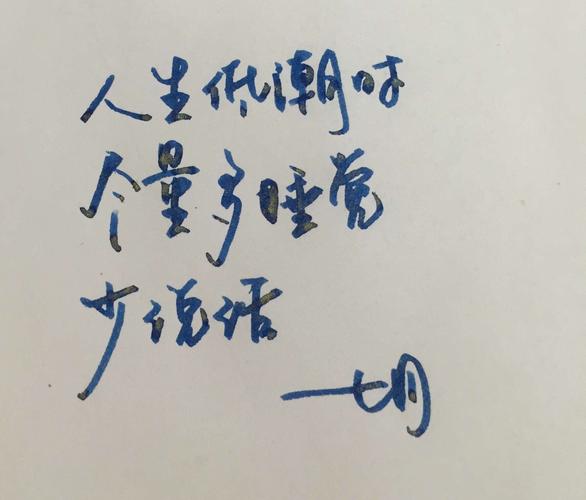 人生低潮时
尽量多睡觉
少说话
—七月